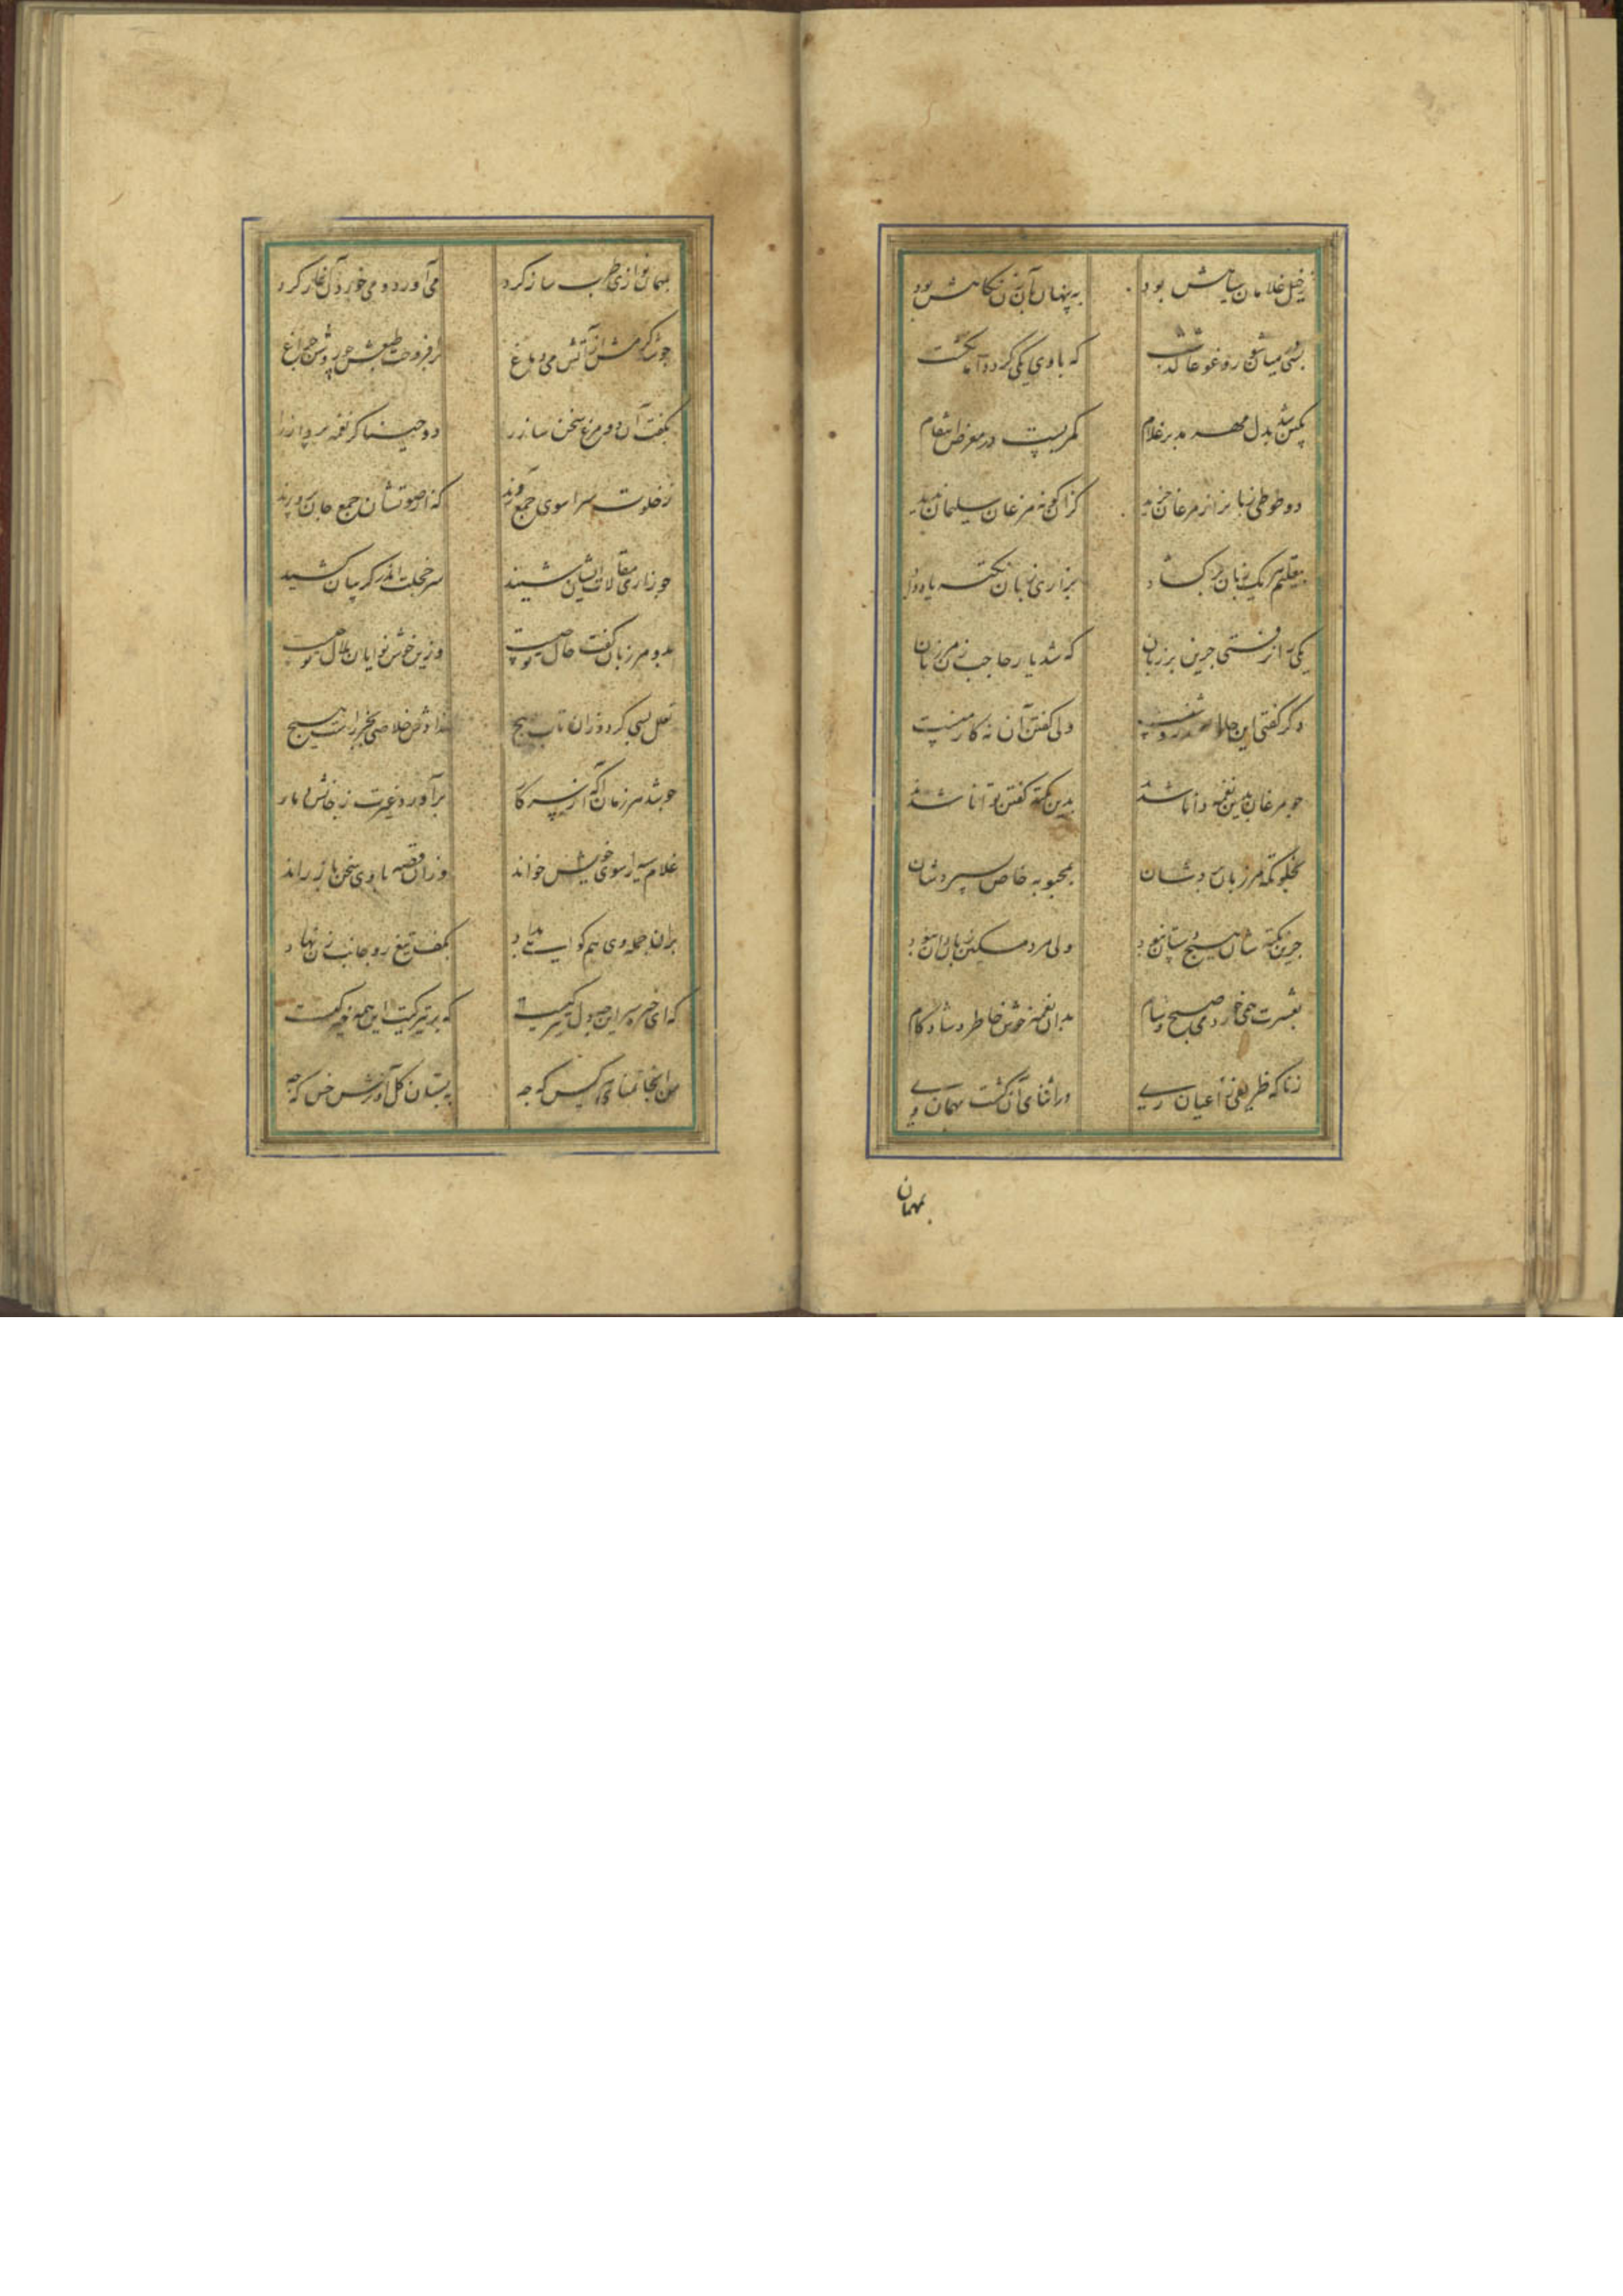 زخیل غلامان سیاهیش بود به پنهان بآن زن نکاهیش بود
شبی میانشان روغوغا گذشت که با وی یکی کرد و آنگاه گشت
بکین شد بدل مهر مه بر غلام کمر بست در معرض انتقام
دو طوطی زبان باز از مرغان خرید کزان گونه مرغان سلیمان ندید
بتعلیم هر یک زبان برکشاد بزاری زبان نکته یاد داد
یکی را نرفتی جزین بر زبان که شد یار حاجب زن مرزبان
دگر گفتی این حال ولی گفتن آن نه کار منست
چو مرغان بدین نغمه دانا شدند بدین نکته گفتن توانا شدند
بخلوتگه مرزبان برد شان بمحبوبه خاص سپردشان
جزین نکته شان هیچ دستان نبود ولی مرد مسکین زبان دان نبود
بعشرت همی خورد می صبح و شام بدان نغمه خوش خاطر و شاد کام
زناگه ظریفی ز اعیان ری در اثنای آن گشت مهمان وی
بمهمان
بمهمان نوازی طرب ساز کرد می آورد و می خوردن آغاز کرد
چو شد گرمش از آتش می دماغ برافروخت طبعش چو روشن چراغ
بگفت آن دو مرغ سخن ساز را دو خنیاگر نغمه پرداز را
ز خلوت سرا سوی جمع آورند که از صوتشان جمع جان پرورند
چو زاری مقالات ایشان شنید سر خجلت اندر گریبان کشید
بدو مرزبان گفت حال تو چیست وزین خوش نوایان ملال تو چیست
تعلل بسی کرد و زان تاب پیچ نداد خلاصی بجز راست هیچ
چو شد مرزبان آگه از سر کار برآورد غیرت ز جانش دمار
غلام سیه را سوی خویش خواند وزان قصه با وی سخن باز راند
بران جمله وی هم گواهی بداد بکف تیغ رو جانب زن نهاد
که ای خیره سر این چه بدل تیرگیست که بر تیرگیت این همه خیرگیست
من اینجا تمنای هر کس که چه ببستان گل آمیزش خس که چه